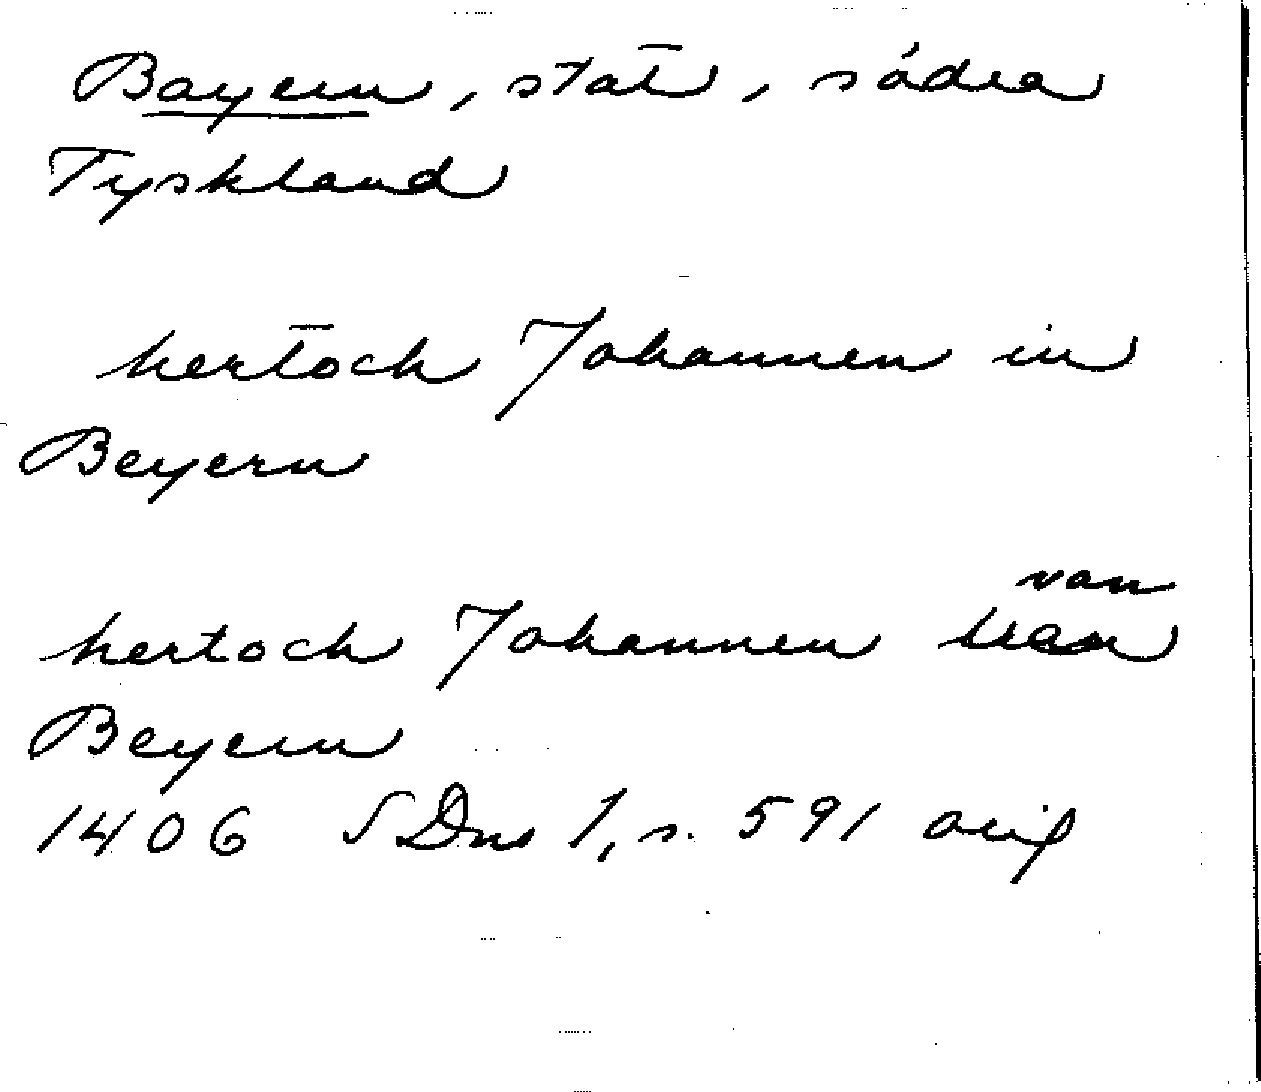 Bayern, stat, södra
Tyskland
hertoch Johannen in
Beyern
van
hertoch Johannen
Beyern
1406 SDns 1, s. 591 orig